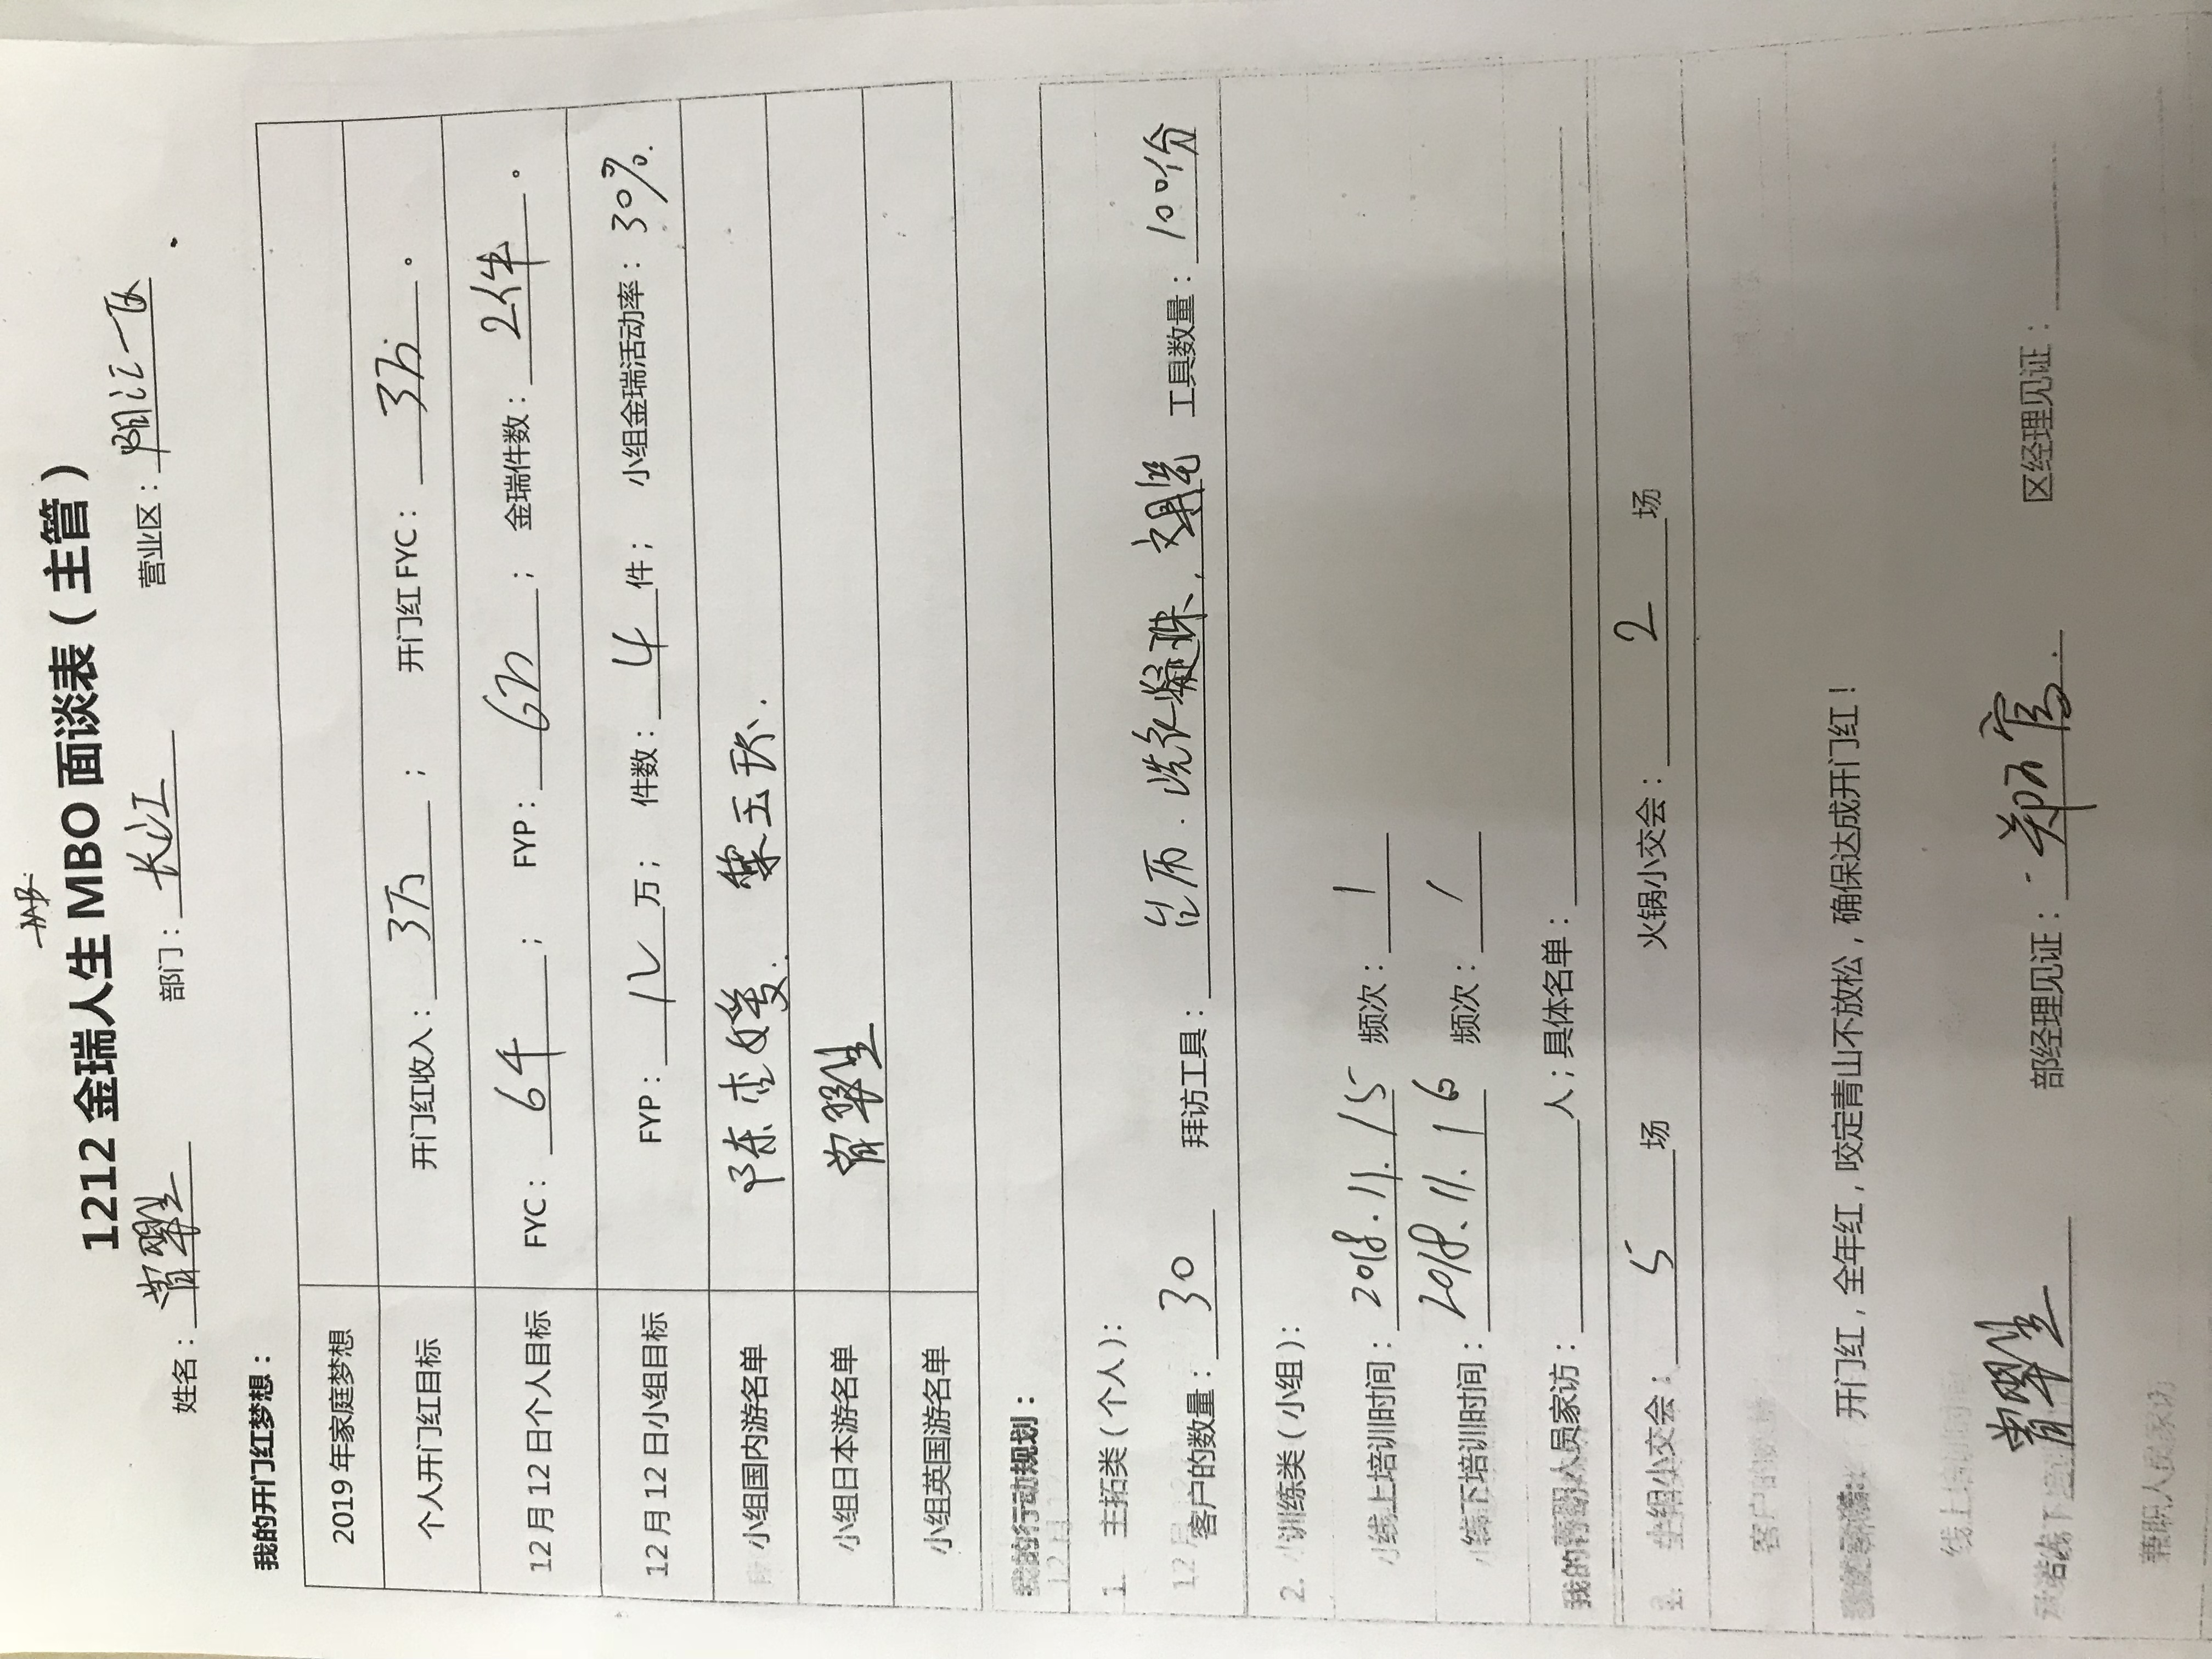 1212 金瑞人生 MBO 面谈表（主管）
姓名： 部门：长江 营业区：阳江一区
我的开门红梦想：
2019 年家庭梦想
个人开门红目标 开门红收入：3万； 开门红 FYC：3万。
12 月 12 日个人目标 FYC：6千； FYP：6万； 金瑞件数：2件。
12 月 12 日小组目标 FYP：12万； 件数：4件； 小组金瑞活动率：30%.
小组国内游名单 陈杏媛. 玉珍.
小组日本游名单
小组英国游名单
我的行动规划：
1. 主拓类（个人）：
客户的数量：30 拜访工具：台历. 洗衣凝珠、 工具数量：100份
2. 训练类（小组）：
线上培训时间：2018.11.15 频次：1
线下培训时间：2018.11.16 频次：1
人；具体名单：
小交会：5场 火锅小交会：2场
开门红，全年红，咬定青山不放松，确保达成开门红！
部经理见证： 区经理见证：